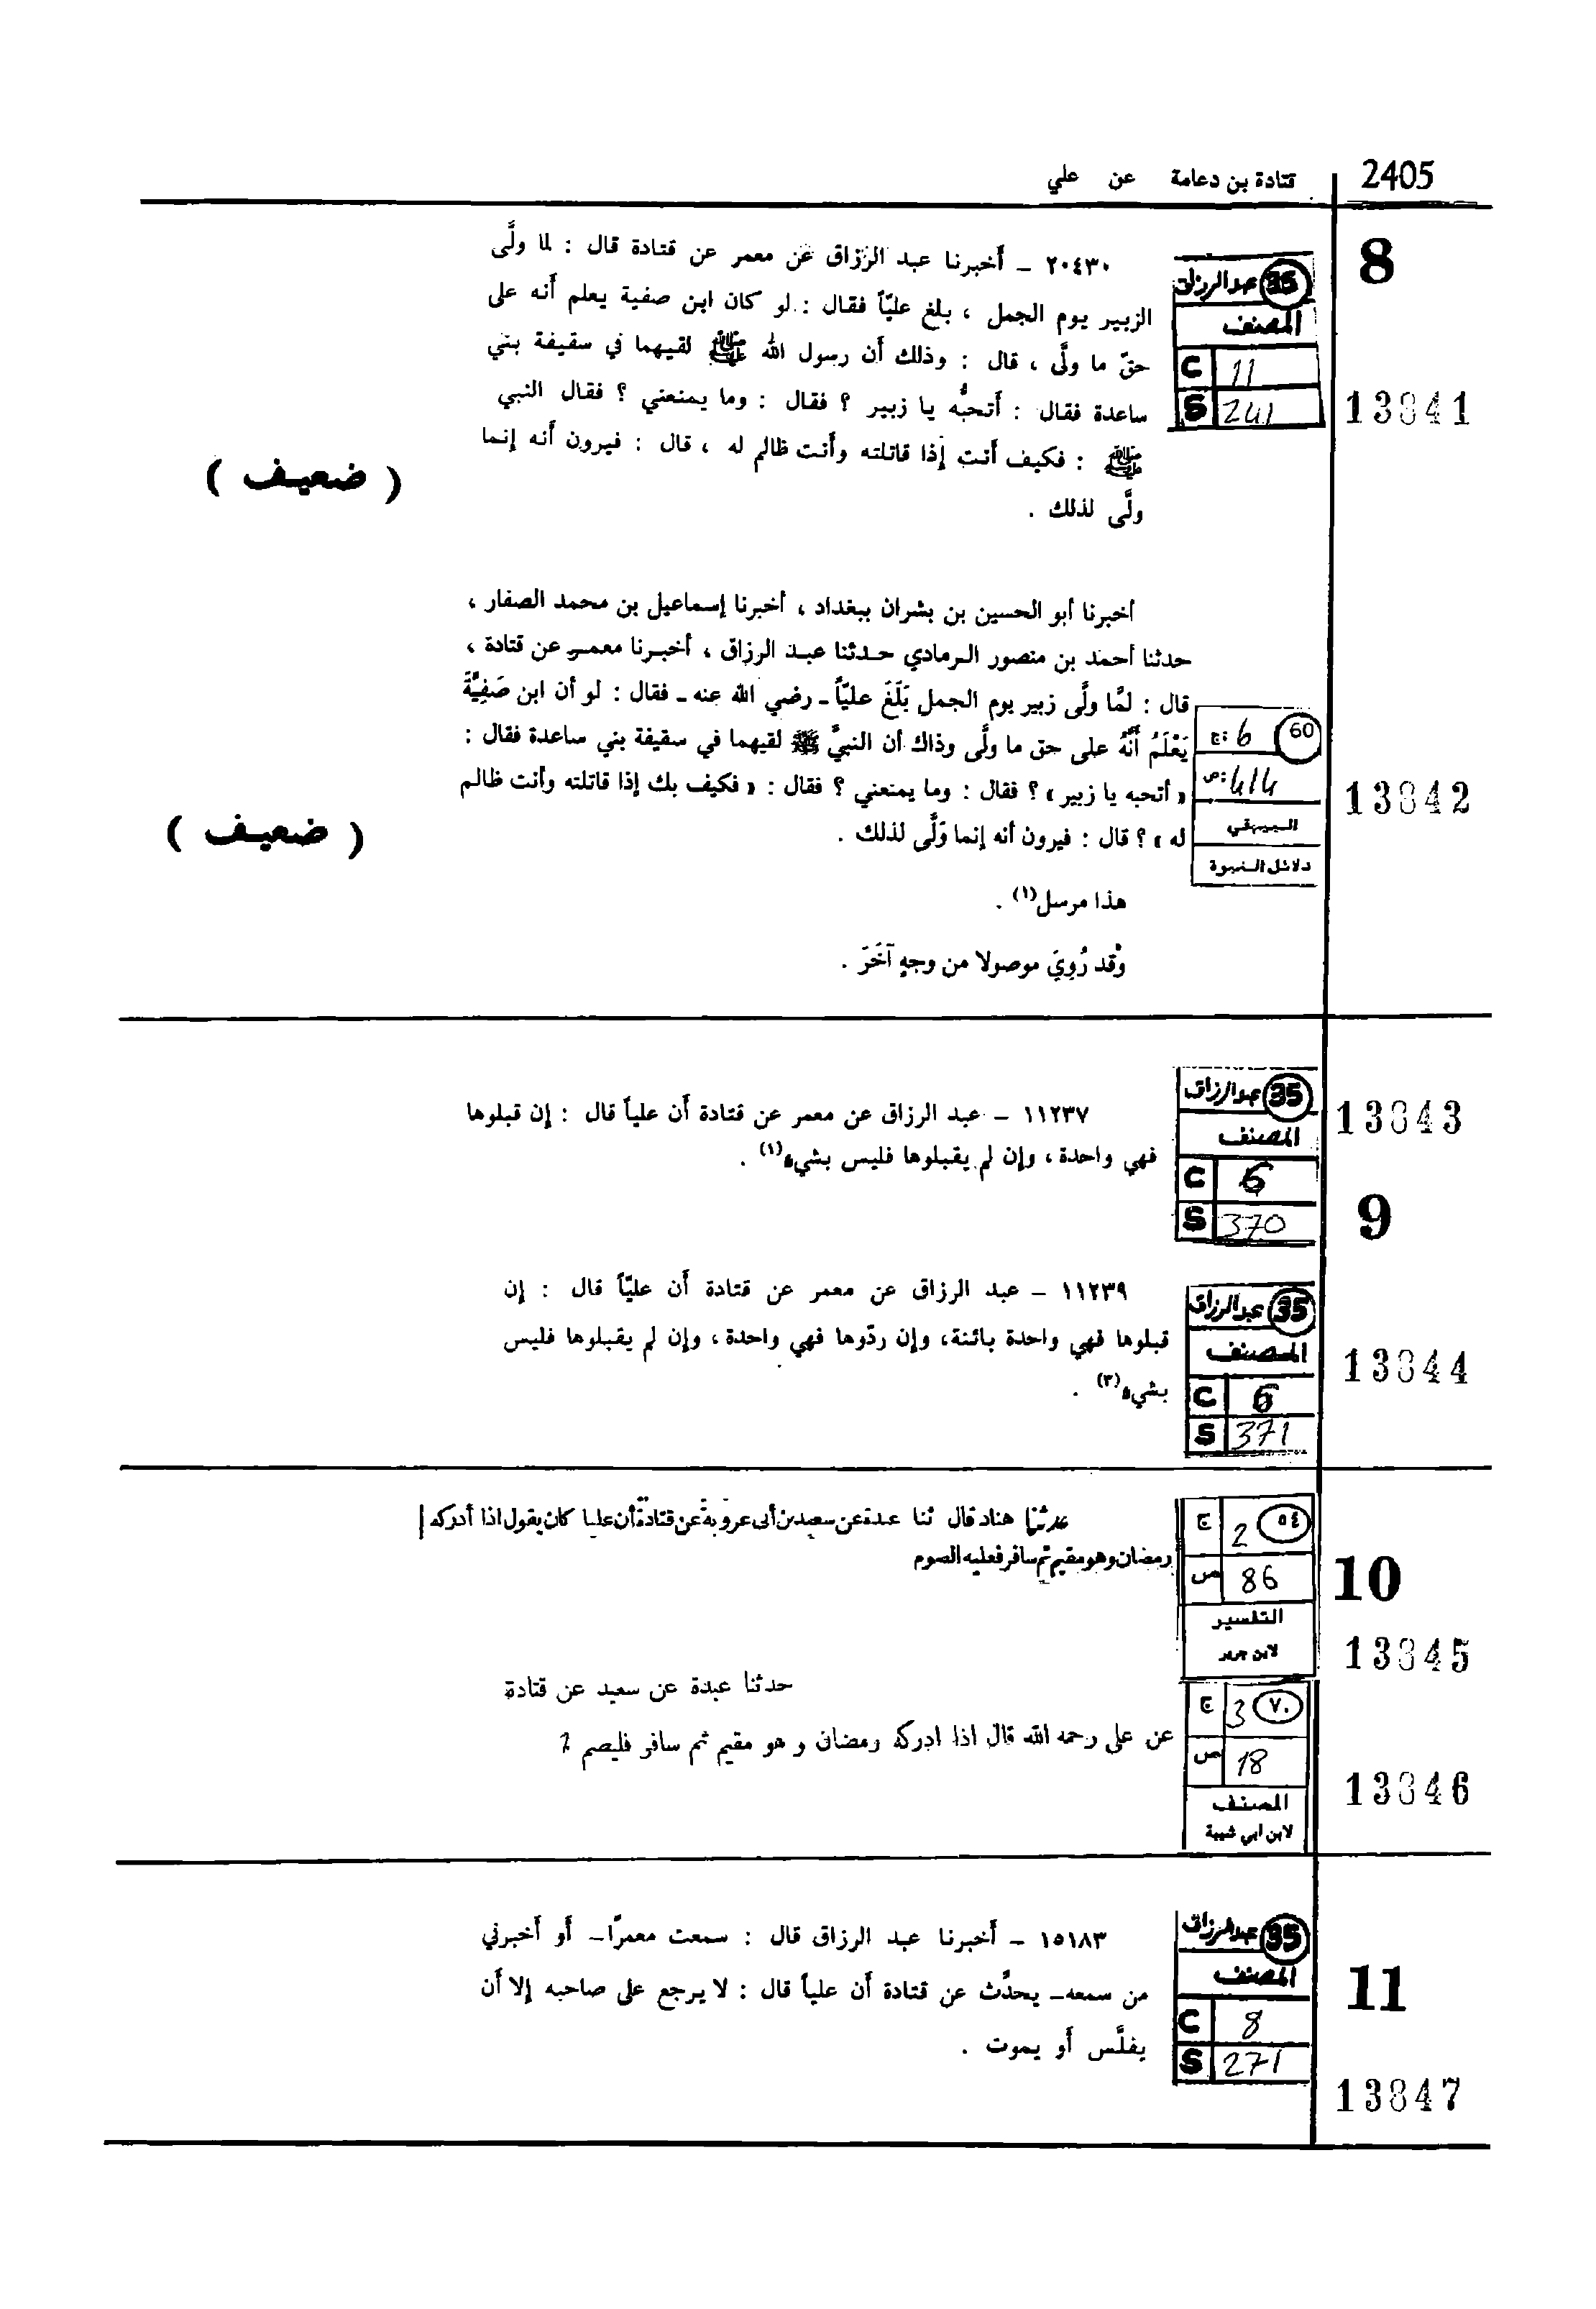 2405
قتادة بن دعامة عن علي
8
35 عبد الرزاق
المصنف
C 11
S 241
13841
٢٠٤٣٠ - أخبرنا عبد الرزاق عن معمر عن قتادة قال : لما ولَّى
الزبير يوم الجمل ، بلغ عليّاً فقال : لو كان ابن صفية يعلم أنه على
حقّ ما ولَّى ، قال : وذلك أن رسول الله ﷺ لقيهما في سقيفة بني
ساعدة فقال : أتحبُّه يا زبير ؟ فقال : وما يمنعني ؟ فقال النبي
ﷺ : فكيف أنت إذا قاتلته وأنت ظالم له ، قال : فيرون أنه إنما
ولَّى لذلك .
( ضعيف )
أخبرنا أبو الحسين بن بشران ببغداد ، أخبرنا إسماعيل بن محمد الصفار ،
حدثنا أحمد بن منصور الرمادي حدثنا عبد الرزاق ، أخبرنا معمر عن قتادة ،
قال : لمَّا ولَّى زبير يوم الجمل بَلَغَ عليّاً - رضي الله عنه - فقال : لو أن ابن صَفِيَّةَ
يَعْلَمُ أنَّهُ على حق ما ولَّى وذاك أن النبيَّ ﷺ لقيهما في سقيفة بني ساعدة فقال :
« أتحبه يا زبير » ؟ فقال : وما يمنعني ؟ فقال : « فكيف بك إذا قاتلته وأنت ظالم
له » ؟ قال : فيرون أنه إنما وَلَّى لذلك .
هذا مرسل(١) .
وقد رُوِيَ موصولا من وجهٍ آخَرَ .
60 ج: 6
ص: 414
البيهقي
دلائل النبوة
13842
( ضعيف )
35 عبد الرزاق
المصنف
C 6
S 370
13843
9
١١٢٣٧ - عبد الرزاق عن معمر عن قتادة أن علياً قال : إن قبلوها
فهي واحدة ، وإن لم يقبلوها فليس بشيء(١) .
35 عبد الرزاق
المصنف
C 6
S 371
13844
١١٢٣٩ - عبد الرزاق عن معمر عن قتادة أن عليّاً قال : إن
قبلوها فهي واحدة بائنة، وإن ردّوها فهي واحدة ، وإن لم يقبلوها فليس
بشيء(٣) .
٥٤ 2 ج
86 ص
التفسير
لابن جرير
10
13845
حدثنا هناد قال ثنا عبدة عن سعيد بن أبى عروبة عن قتادة أن عليا كان يقول اذا أدركه
رمضان وهو مقيم ثم سافر فعليه الصوم
٧٠ 3 ج
18 ص
المصنف
لابن ابي شيبة
13846
حدثنا عبدة عن سعيد عن قتادة
عن على رحمه الله قال اذا ادركه رمضان و هو مقيم ثم سافر فليصم ؟
35 عبد الرزاق
المصنف
C 8
S 271
11
13847
١٥١٨٣ - أخبرنا عبد الرزاق قال : سمعت معمرًا - أو أخبرني
من سمعه - يحدَّث عن قتادة أن علياً قال : لا يرجع على صاحبه إلا أن
يفلَّس أو يموت .